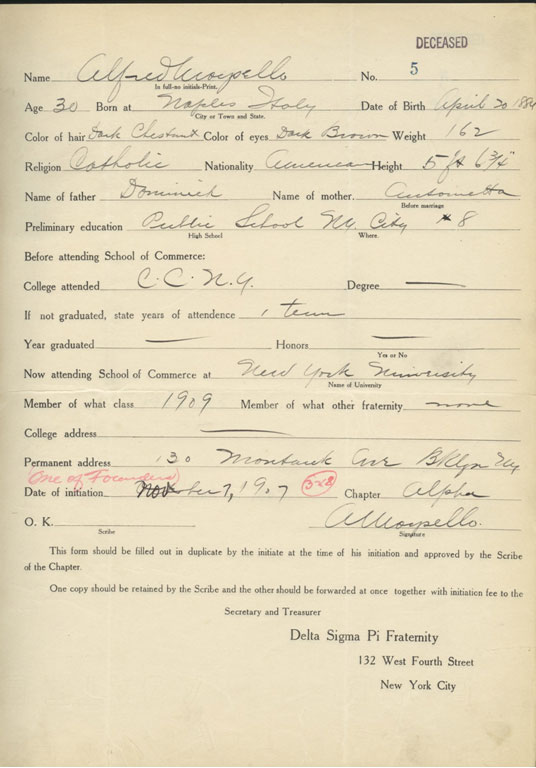 DECEASED
Name Alfred Moysello No. 5
In full-no initials-Print.
Age 30 Born at Naples Italy Date of Birth April 20
City or Town and State.
Color of hair Dark Chestnut Color of eyes Dark Brown Weight 162
Religion Catholic Nationality American Height 5 ft 6 3/4"
Name of father Name of mother.
Before marriage
Preliminary education Public School N.Y. City # 8
High School Where.
Before attending School of Commerce:
College attended C.C.N.Y. Degree —
If not graduated, state years of attendence 1 term
Year graduated — Honors —
Yes or No
Now attending School of Commerce at New York University
Name of University
Member of what class 1909 Member of what other fraternity none
College address —
Permanent address 130 Montauk Ave Bklyn Ny
One of Founders
Date of initiation 7, 1907 328 Chapter Alpha
O. K. A Moysello.
Scribe Signature
This form should be filled out in duplicate by the initiate at the time of his initiation and approved by the Scribe
of the Chapter.
One copy should be retained by the Scribe and the other should be forwarded at once together with initiation fee to the
Secretary and Treasurer
Delta Sigma Pi Fraternity
132 West Fourth Street
New York City